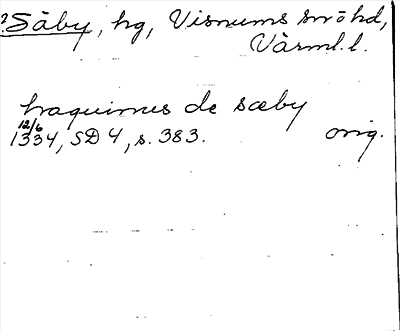 ? Säby, hg, Visnums snöhd,
Värml. l.
haquimus de sæby
12/6
1334, SD 4, s. 383. orig.